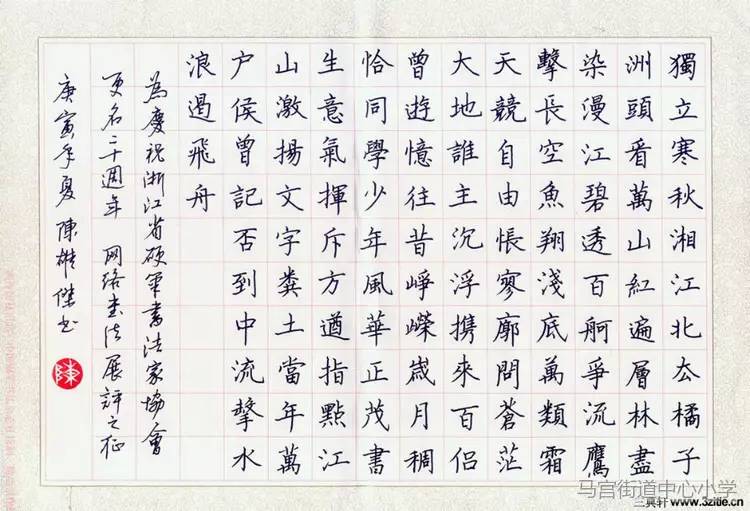 獨立寒秋湘江北厺橘子
洲頭看萬山紅遍層林盡
染漫江碧透百舸爭流鷹
擊長空魚翔淺底萬類霜
天競自由悵寥廓問蒼茫
大地誰主沉浮携來百侣
曾遊憶往昔崢嶸歲月稠
恰同學少年風華正茂書
生意氣揮斥方遒指點江
山激揚文字糞土當年萬
户侯曾記否到中流擊水
浪遏飛舟
為慶祝浙江省硬筆書法家協會
更名二十週年 网络書法展評之征
庚寅年夏 陳雄傑书
陳
马宫街道中心小学
www.3zitie.cn